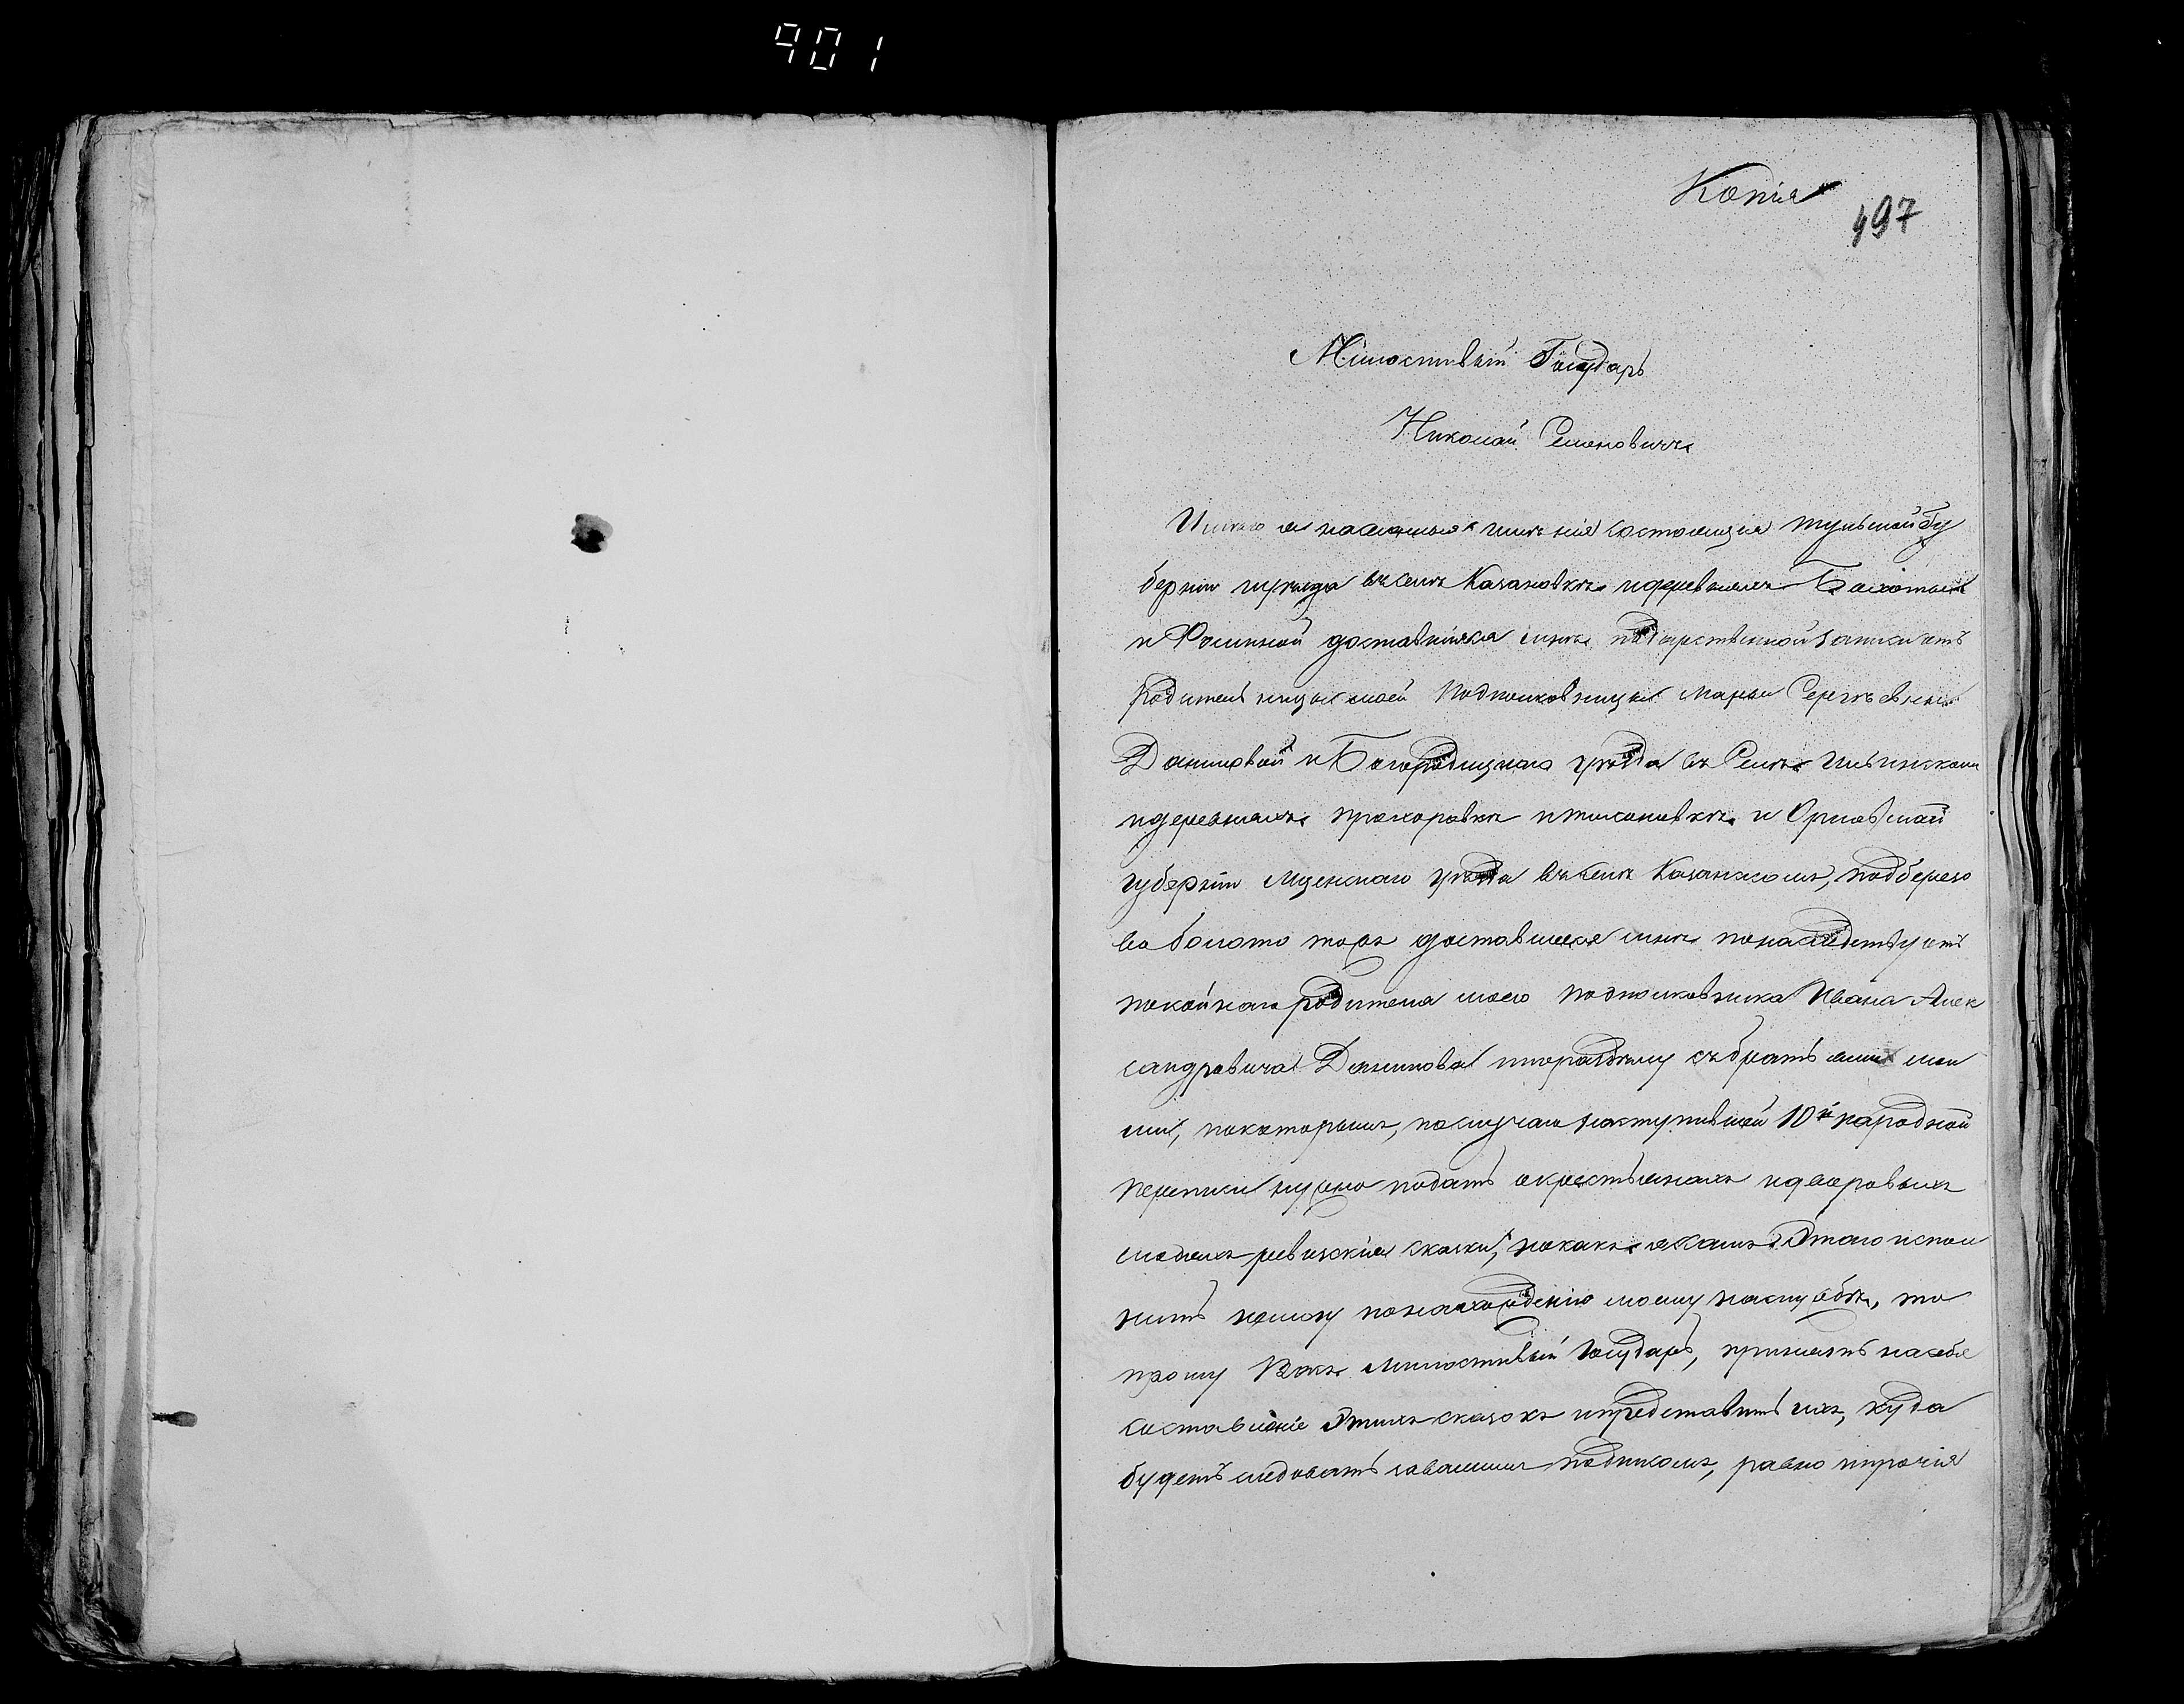 901
Копія
497
Милостивый Государь
Николай Семеновичъ
Имѣю я населенныя имѣнія состоящія тульской Гу
берніи уѣзда въ селѣ Казановкѣ идеревняхъ
и доставшіяся мнѣ записи отъ
Родительницы моей Подполковницы Марьи Сергѣевны
Даниловой и Богородицкаго уѣзда въ Селѣ Ильинскомъ
идеревняхъ прохоровкѣ итихоновкѣ и Орловской
губерніи Мценскаго уѣзда въ селѣ Казанскомъ,
болото тожъ доставшееся мнѣ понаслѣдству отъ
покойнаго родителя моего подполковника Ивана Алек
сандровича Данилова съ братьями мои
ми, покоторымъ, послучаю наступившей 10й народной
переписи нужно подать окрестьянахъ идворовыхъ
людяхъ ревизскія сказки, нокакъ ясамъ Этаго испол
нить немогу понахожденію моему наслужбѣ, то
прошу Васъ Милостивый Государь, принять насебя
составленіе Этихъ сказокъ ипредставить ихъ, куда
будетъ слѣдовать завашимъ подписомъ, равно ипрочія